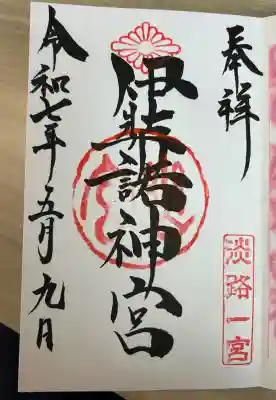 奉祥
淡路一宮
伊弉諾神宮
令和七年五月九日